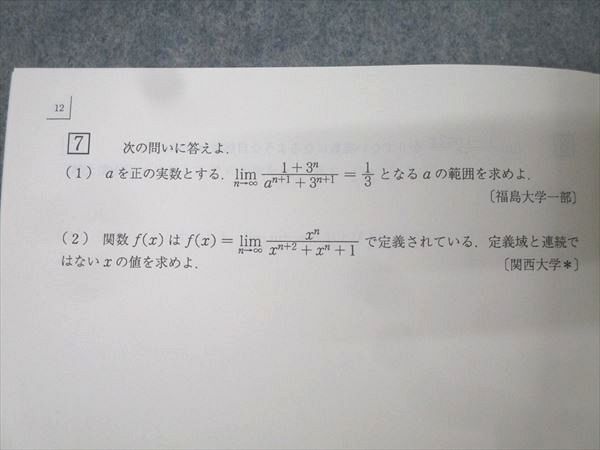 12
7 次の問いに答えよ.
(1) aを正の実数とする. lim_{n→∞} \frac{1+3^n}{a^{n+1}+3^{n+1}} = \frac{1}{3} となる a の範囲を求めよ.
〔福島大学一部〕
(2) 関数 f(x) は f(x) = lim_{n→∞} \frac{x^n}{x^{n+2}+x^n+1} で定義されている. 定義域と連続で
はない x の値を求めよ. 〔関西大学*〕